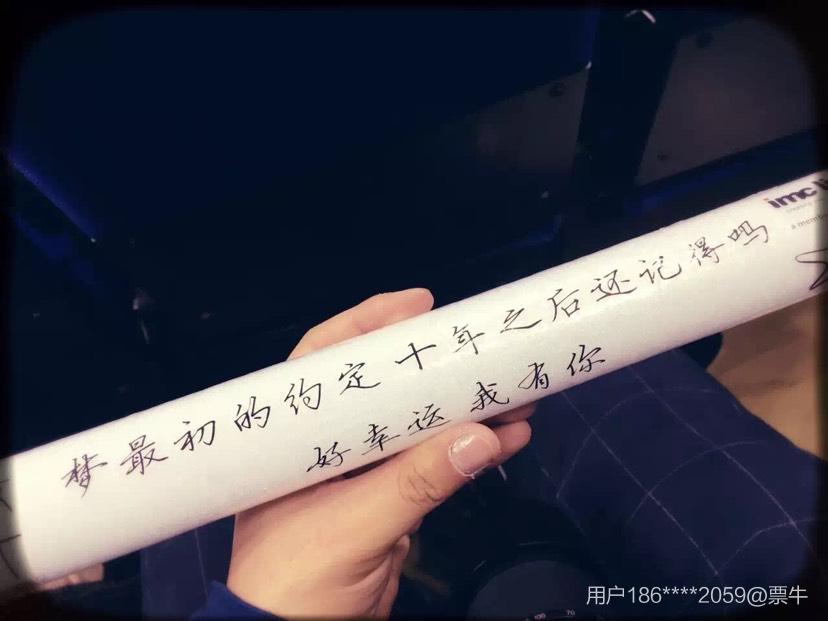 imc li
a memb
梦最初的约定十年之后还记得吗
好幸运我有你
用户186****2059@票牛